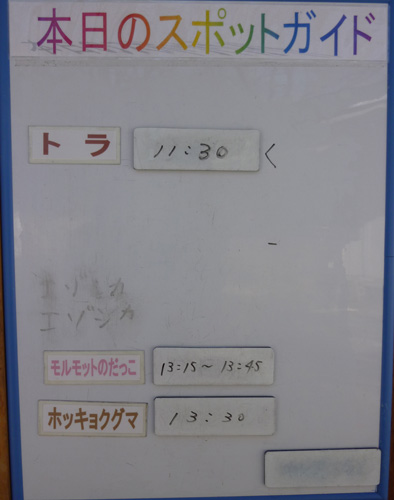 本日のスポットガイド
トラ 11:30
エゾシカ
エゾシカ
モルモットのだっこ 13:15～13:45
ホッキョクグマ 13:30